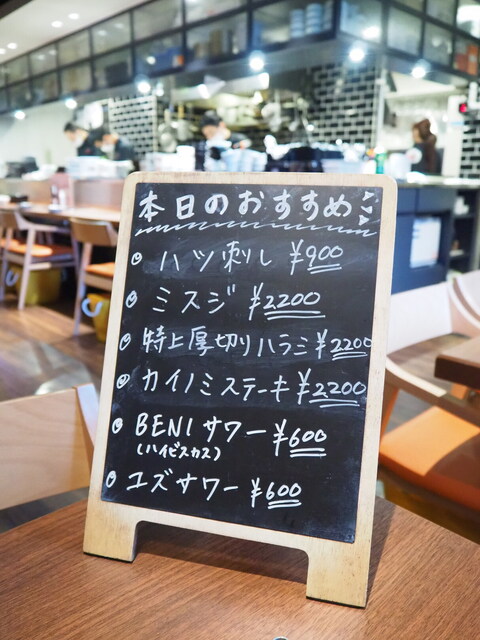 本日のおすすめ
ハツ刺し ¥900
ミスジ ¥2200
特上厚切りハラミ ¥2200
カイノミステーキ ¥2200
BENIサワー ¥600
(ハイビスカス)
ユズサワー ¥600